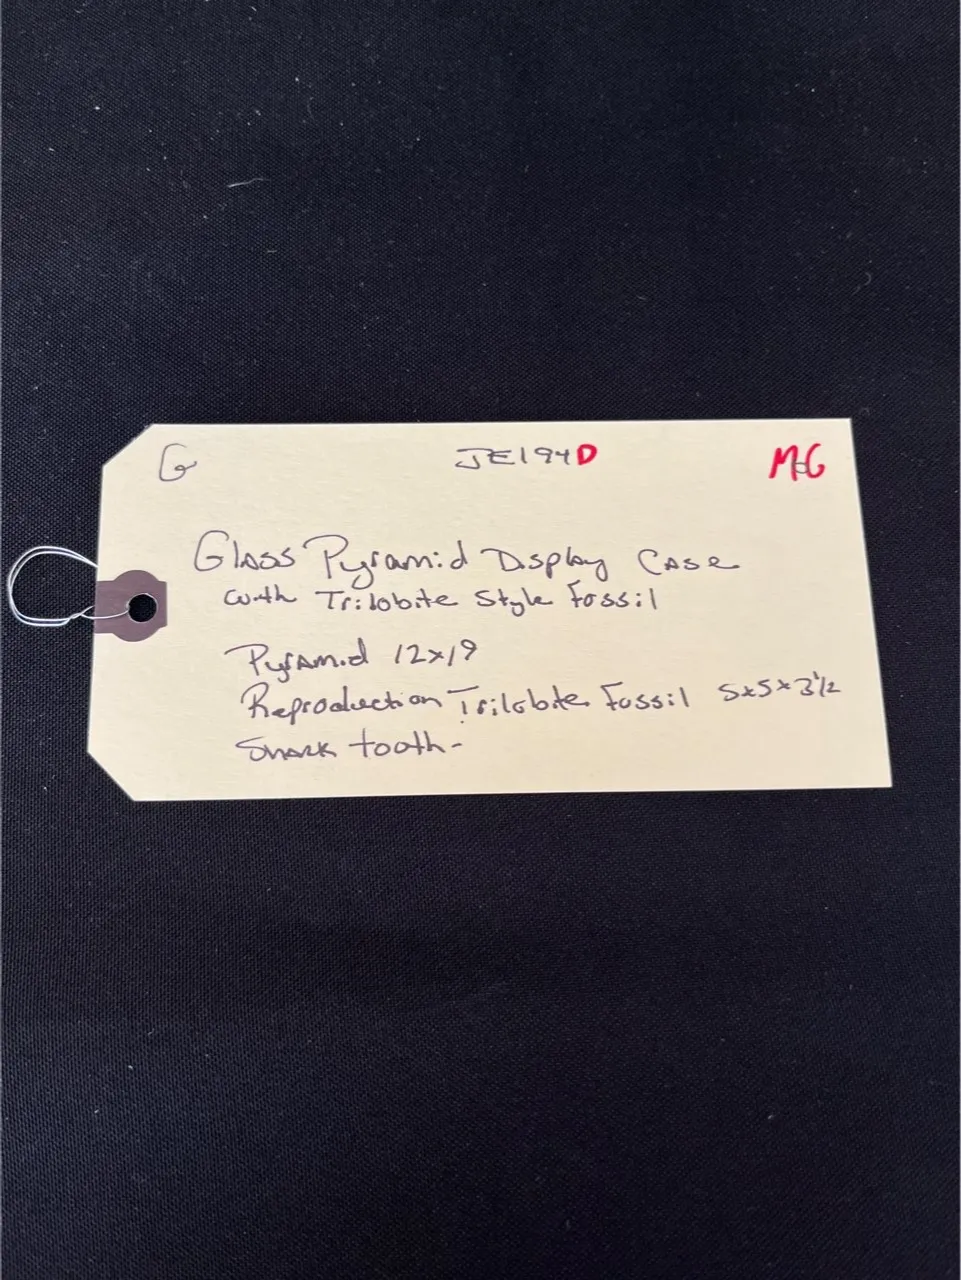 G JE194D McG
Glass Pyramid Display Case
with Trilobite Style Fossil
Pyramid 12x19
Reproduction Trilobite Fossil 5x5x3 1/2
Shark tooth-